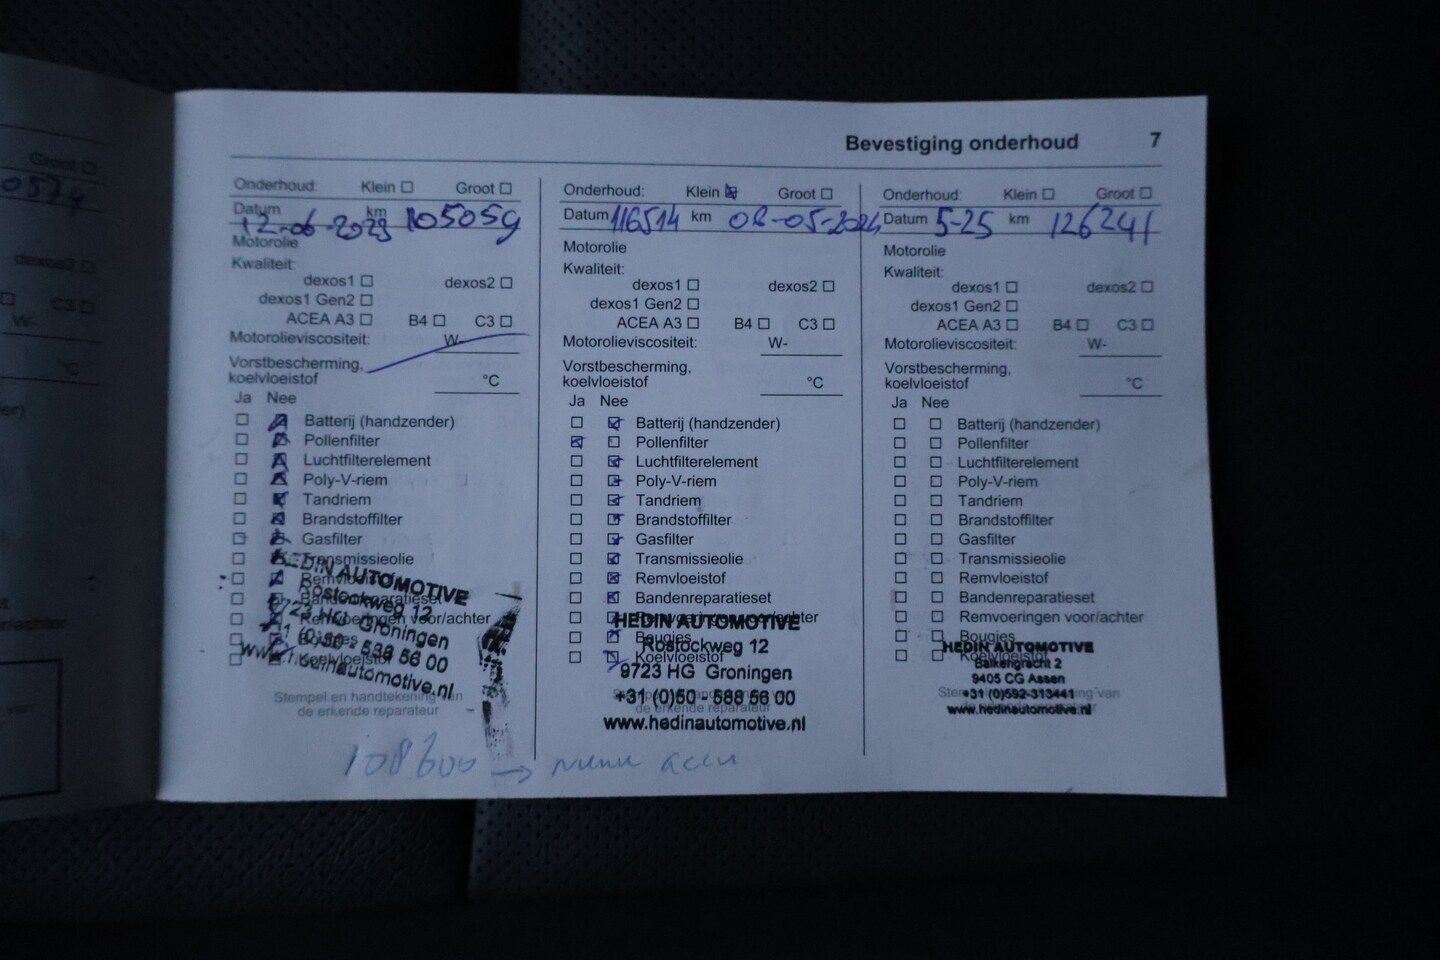 Groot
0574
dexos2
C3
W-
°C
Bevestiging onderhoud 7
Onderhoud: Klein Groot
Datum 12-06-2023 km 105059
Motorolie
Kwaliteit:
dexos1 dexos2
dexos1 Gen2
ACEA A3 B4 C3
Motorolieviscositeit: W-
Vorstbescherming,
koelvloeistof °C
Ja Nee
Batterij (handzender)
Pollenfilter
Luchtfilterelement
Poly-V-riem
Tandriem
Brandstoffilter
Gasfilter
Transmissieolie
Remvloeistof
Bandenreparatieset
Remvoeringen voor/achter
Bougies
Koelvloeistof
HEDIN AUTOMOTIVE
Rostockweg 12
9723 HG Groningen
+31 (0)50 - 588 56 00
www.hedinautomotive.nl
Stempel en handtekening van
de erkende reparateur
108600 → nieuwe accu
Onderhoud: Klein Groot
Datum 116514 km 08-05-2024
Motorolie
Kwaliteit:
dexos1 dexos2
dexos1 Gen2
ACEA A3 B4 C3
Motorolieviscositeit: W-
Vorstbescherming,
koelvloeistof °C
Ja Nee
Batterij (handzender)
Pollenfilter
Luchtfilterelement
Poly-V-riem
Tandriem
Brandstoffilter
Gasfilter
Transmissieolie
Remvloeistof
Bandenreparatieset
Remvoeringen voor/achter
Bougies
Koelvloeistof
HEDIN AUTOMOTIVE
Rostockweg 12
9723 HG Groningen
+31 (0)50 - 588 56 00
www.hedinautomotive.nl
de erkende reparateur
Onderhoud: Klein Groot
Datum 5-25 km 126241
Motorolie
Kwaliteit:
dexos1 dexos2
dexos1 Gen2
ACEA A3 B4 C3
Motorolieviscositeit: W-
Vorstbescherming,
koelvloeistof °C
Ja Nee
Batterij (handzender)
Pollenfilter
Luchtfilterelement
Poly-V-riem
Tandriem
Brandstoffilter
Gasfilter
Transmissieolie
Remvloeistof
Bandenreparatieset
Remvoeringen voor/achter
Bougies
Koelvloeistof
HEDIN AUTOMOTIVE
Balkengracht 2
9405 CG Assen
+31 (0)592-313441
www.hedinautomotive.nl